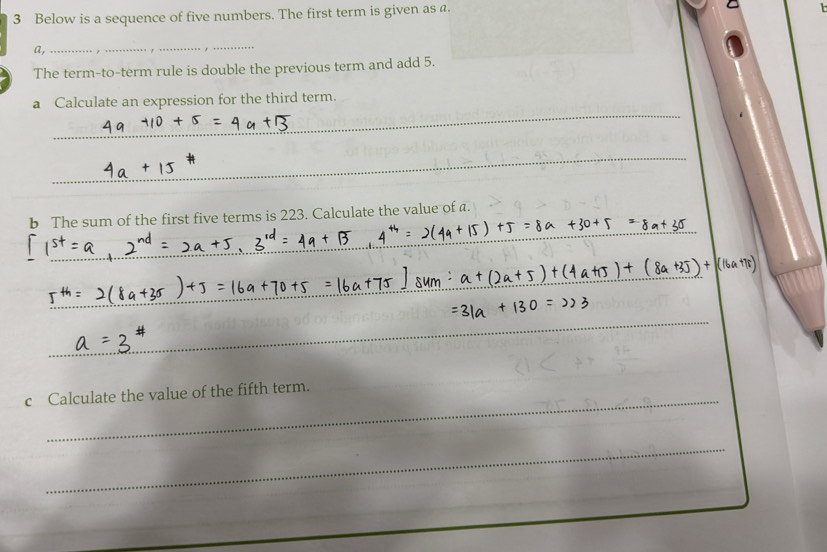 3 Below is a sequence of five numbers. The first term is given as a.
a, ............ , ............ , ............ , ............
The term-to-term rule is double the previous term and add 5.
a Calculate an expression for the third term.
4a +10 + 5 = 4a + 15
4a + 15 #
b The sum of the first five terms is 223. Calculate the value of a.
[ 1st = a , 2nd = 2a + 5 , 3rd = 4a + 15 , 4th = 2(4a + 15) + 5 = 8a + 30 + 5 = 8a + 35
5th = 2(8a + 35) + 5 = 16a + 70 + 5 = 16a + 75 ] sum : a + (2a + 5) + (4a + 15) + (8a + 35) + (16a + 75)
= 31a + 130 = 223
a = 3 #
c Calculate the value of the fifth term.